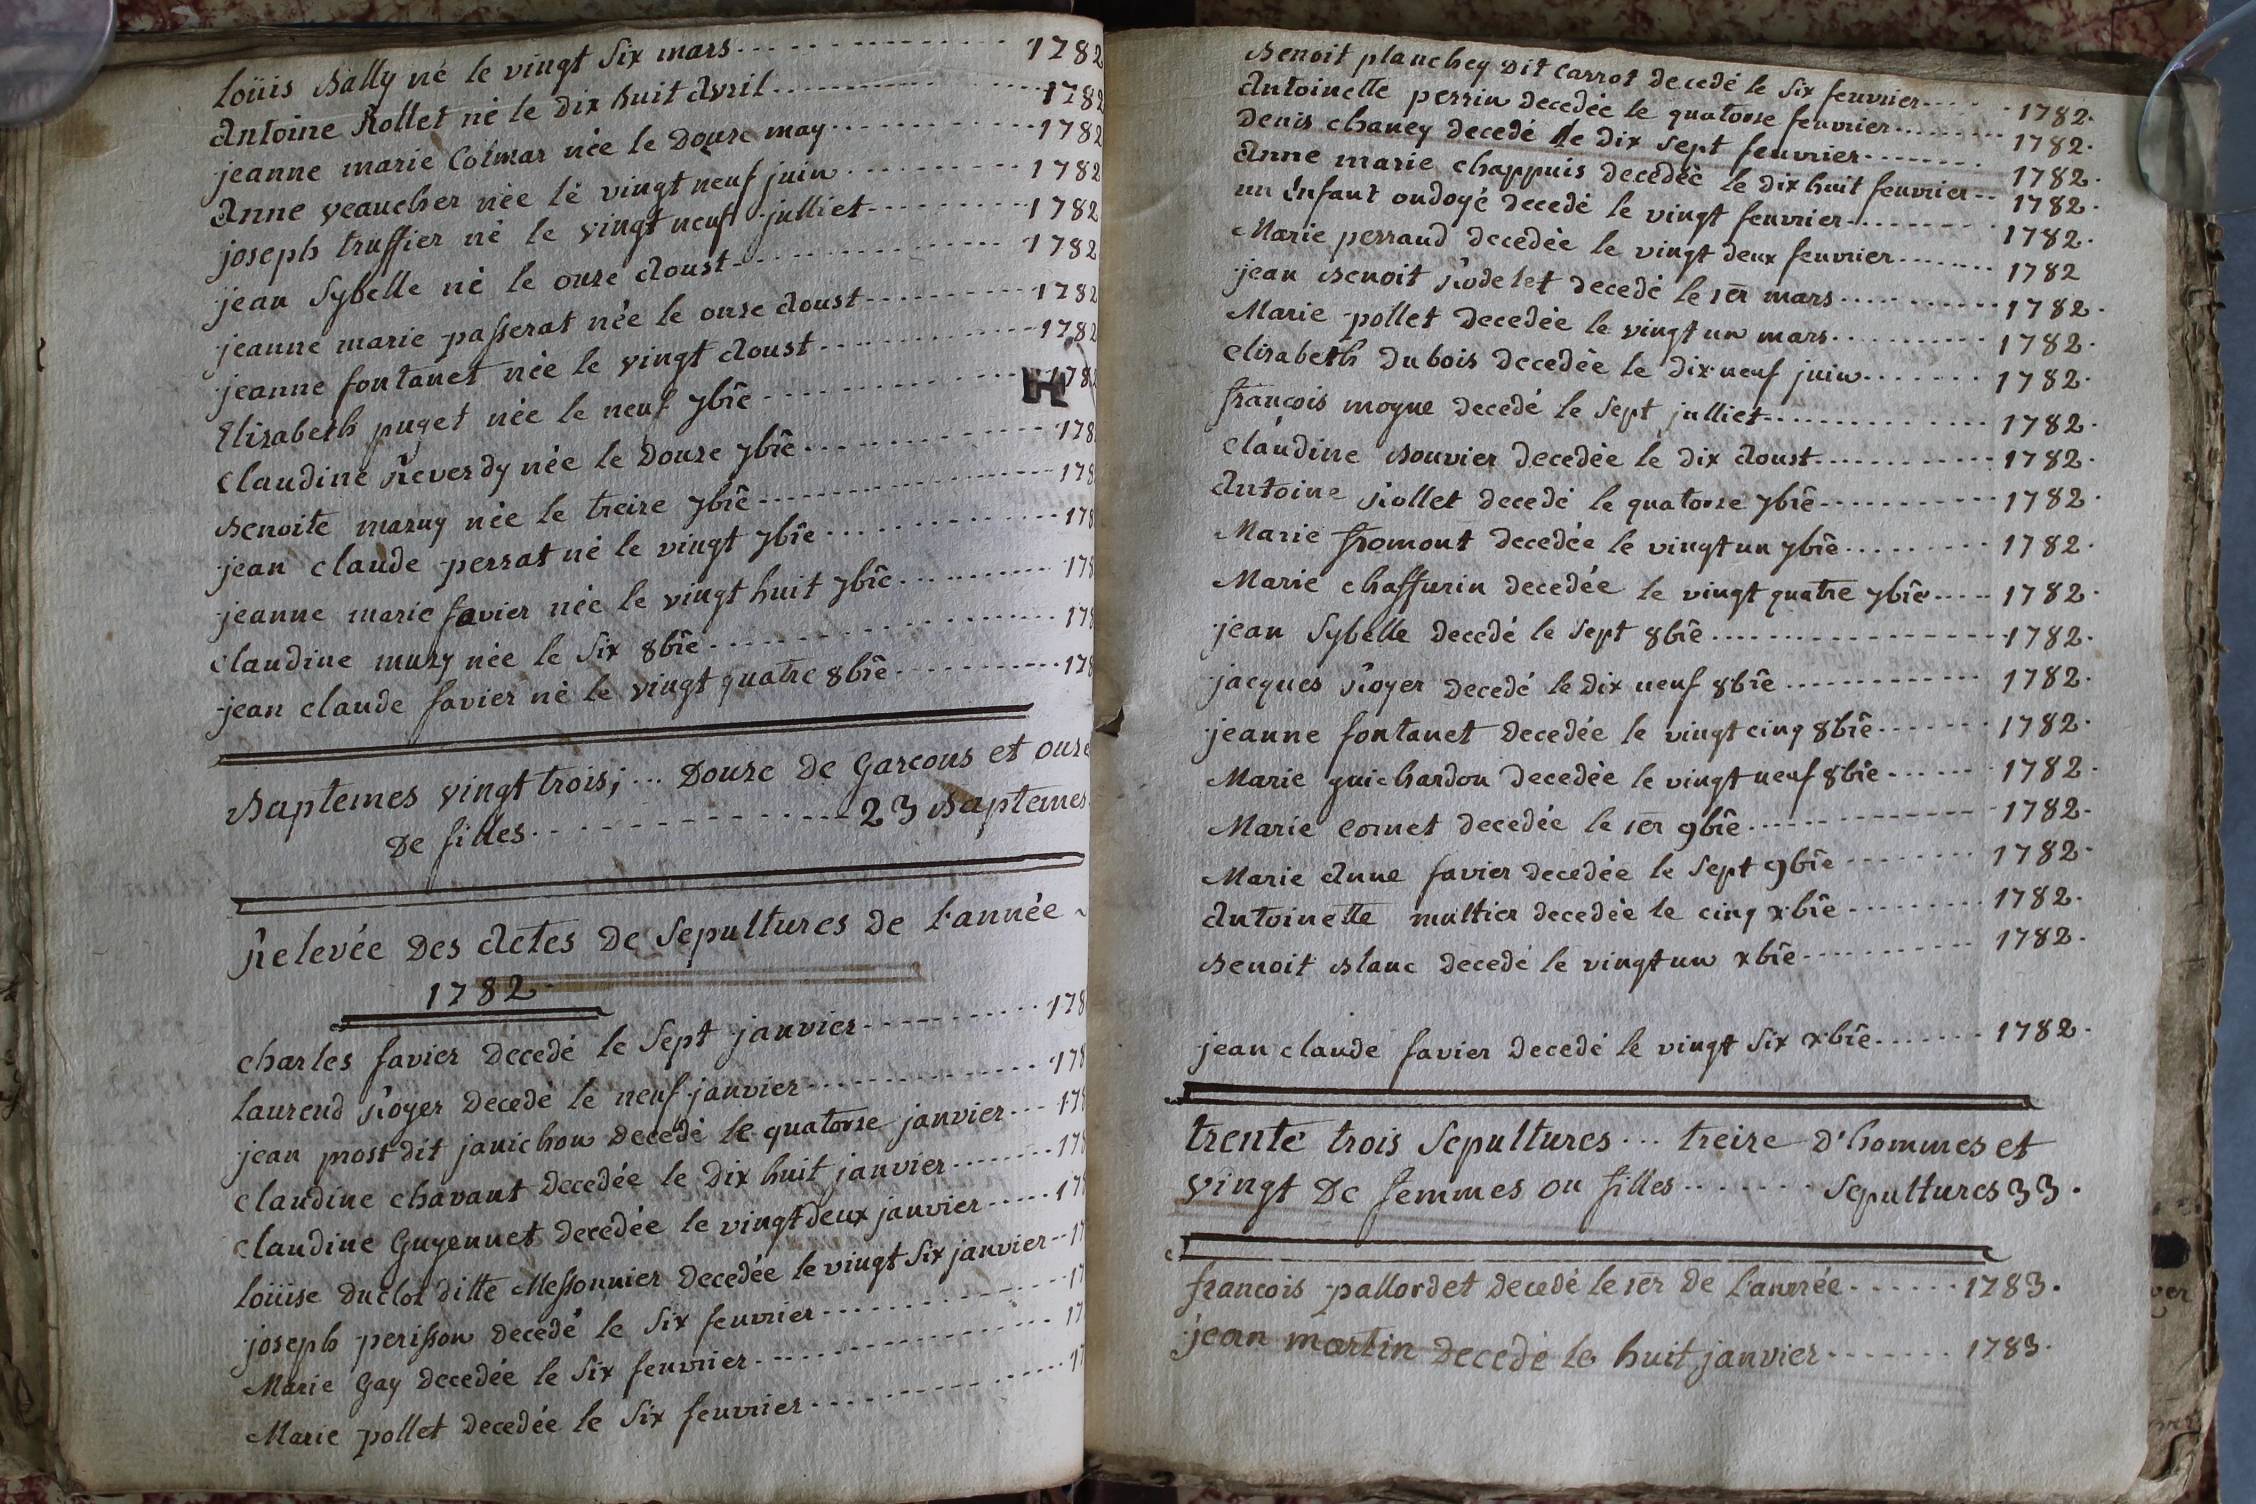 loüis Bally né le vingt six mars 1782
Antoine Rollet né le dix huit avril 1782
jeanne marie Colmar née le douze may 1782
Anne veaucher née le vingt neuf juin 1782
joseph truffier né le vingt neuf julliet 1782
jean Sybelle né le onze aoust 1782
jeanne marie passerat née le onze aoust 1782
jeanne fontanet née le vingt aoust 1782
Elizabeth puget née le neuf 7bre 178
Claudine Reverdy née le douze 7bre 178
Benoite mazuy née le treize 7bre 178
jean claude perrat né le vingt 7bre 178
jeanne marie favier née le vingt huit 7bre 178
claudine muzy née le six 8bre 178
jean claude favier né le vingt quatre 8bre 178
Baptemes vingt trois; ... Douze de Garcons et onze
De filles 23 Baptemes
Relevée des Actes de Sepultures de l'année
1782
charles favier decedé le sept janvier 178
laurend Royer decedé le neuf janvier 178
jean prost dit janichon decedé le quatorze janvier 178
claudine chavant decedée le dix huit janvier 178
claudine Guyennet decedée le vingt deux janvier 17
loüise duclot ditte Messonnier decedée le vingt six janvier 17
joseph perisson decedé le six feuvrier 17
Marie Gay decedée le six feuvrier 17
Marie pollet decedée le six feuvrier 17
Benoit planchey dit Carrot decedé le six feuvrier 1782.
Antoinette perrin decedée le quatorze feuvrier 1782.
Denis chaney decedé le dix sept feuvrier 1782.
Anne marie chappuis decedée le dix huit feuvrier 1782.
un Enfant ondoyé decedé le vingt feuvrier 1782.
Marie perraud decedée le vingt deux feuvrier 1782
jean Benoit Rodelet decedé le 1er mars 1782.
Marie pollet decedée le vingt un mars 1782.
elizabeth dubois decedée le dix neuf juin 1782.
francois moyne decedé le sept julliet 1782.
claudine Bouvier decedée le dix aoust 1782.
Antoine Rollet decedé le quatorze 7bre 1782.
Marie fromont decedée le vingt un 7bre 1782.
Marie chaffurin decedée le vingt quatre 7bre 1782.
jean Sybelle decedé le sept 8bre 1782.
jacques Royer decedé le dix neuf 8bre 1782.
jeanne fontanet decedée le vingt cinq 8bre 1782.
Marie guichardon decedée le vingt neuf 8bre 1782.
Marie cornet decedée le 1er 9bre 1782.
Marie Anne favier decedée le sept 9bre 1782.
Antoinette multier decedée le cinq xbre 1782.
Benoit Blanc decedé le vingt un xbre 1782.
jean claude favier decedé le vingt six xbre 1782.
trente trois Sepultures ... treize d'hommes et
vingt de femmes ou filles Sepultures 33.
francois pallordet decedé le 1er de l'année 1783.
jean martin decedé le huit janvier 1783.